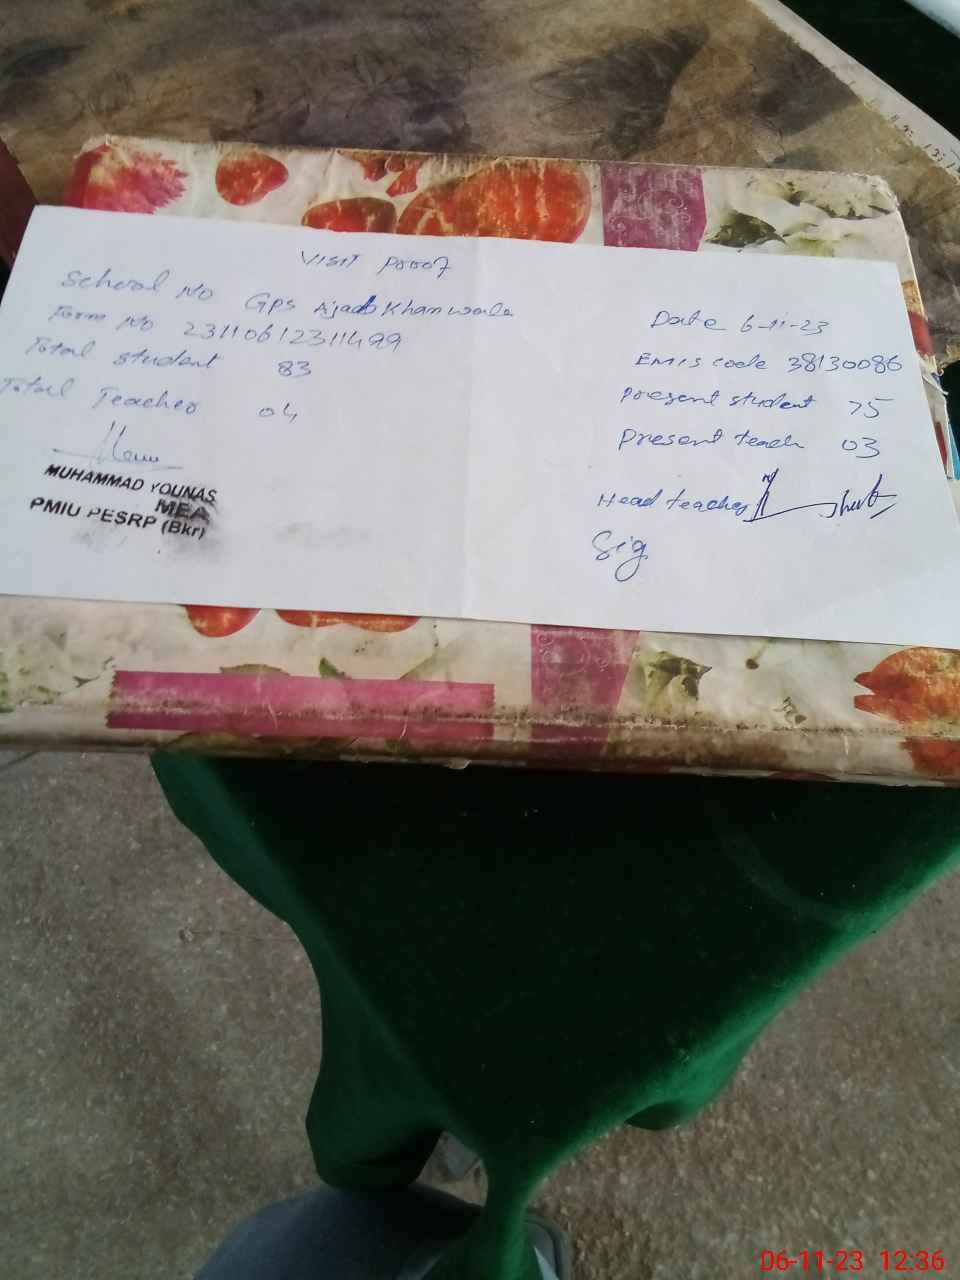 Visit Proof
School No GPS Ajab Khan wala
Form No 23110612311499
Total student 83
Total Teacher 04
MUHAMMAD YOUNAS
MEA
PMIU PESRP (Bkr)
Date 6-11-23
EMIS code 38130086
Present student 75
Present teach 03
Head teacher
Sig
06-11-23 12:36